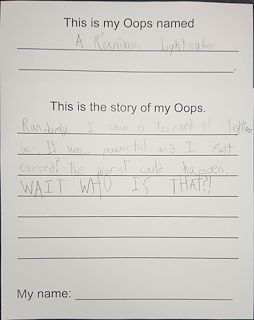 This is my Oops named
A Random Lightsaber
This is the story of my Oops.
Randomly I saw a turned of light
ber. It was... powerful and I felt
cursed? The worst could happen.
WAIT WHU IS THAT?!
My name: